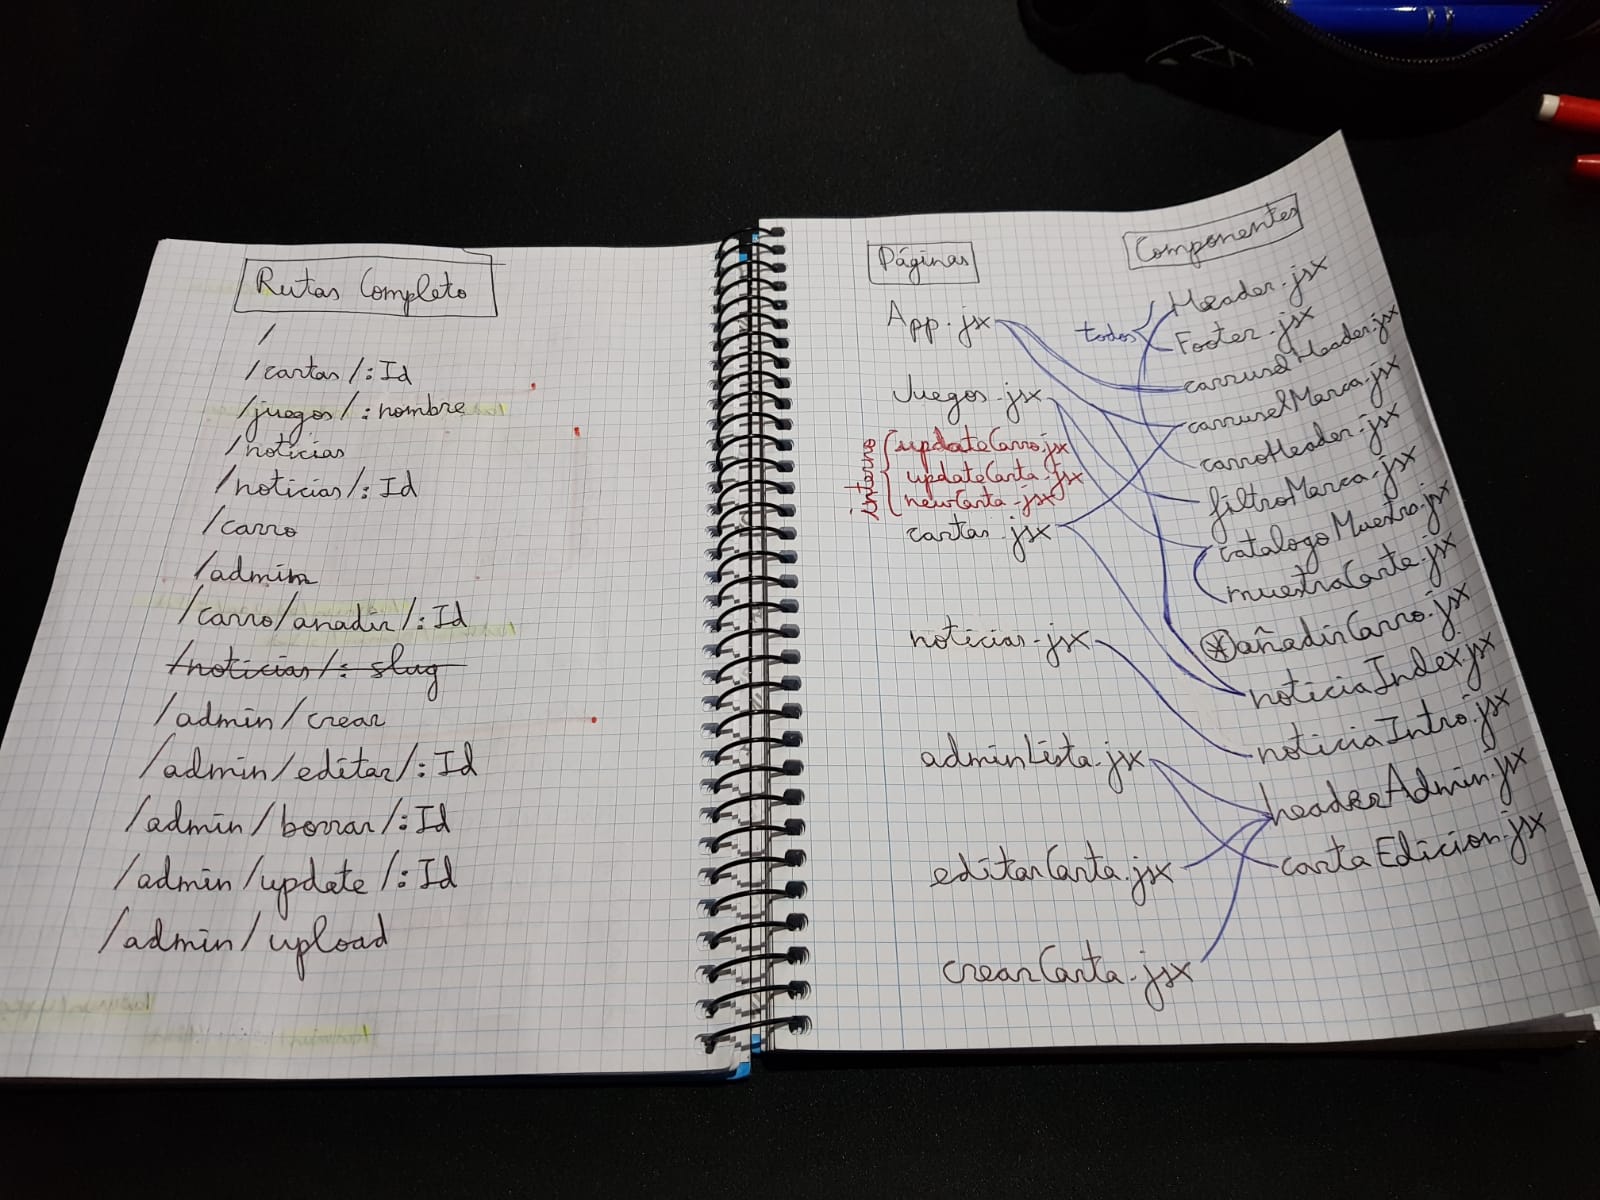 Rutas Completo
/
/cartas/:Id
/juegos/:nombre
/noticias
/noticias/:Id
/carro
/admin
/carro/anadir/:Id
/noticias/:slug
/admin/crear
/admin/editar/:Id
/admin/borrar/:Id
/admin/update/:Id
/admin/upload
Páginas
App.jsx
Juegos.jsx
interno
updateCarro.jsx
updateCarta.jsx
newCarta.jsx
cartas.jsx
noticias.jsx
adminLista.jsx
editarCarta.jsx
crearCarta.jsx
Componentes
todos
Header.jsx
Footer.jsx
carruselHeader.jsx
carruselMarca.jsx
carroHeader.jsx
filtroMarca.jsx
catalogoMuestra.jsx
muestraCarta.jsx
* añadirCarro.jsx
noticiaIndex.jsx
noticiaIntro.jsx
headerAdmin.jsx
cartaEdicion.jsx